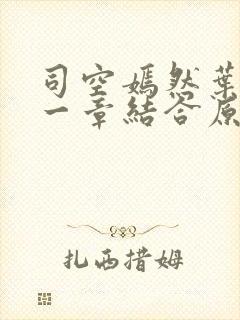 司空嫣然葉
一章結答原
扎西措姆